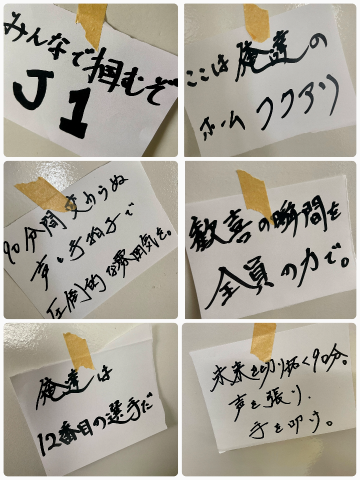 みんなで掴むぞ
J1
ここは俺達の
ホームフクアリ
90分間変わらぬ
声・手拍子で
圧倒的な雰囲気を。
歓喜の瞬間を
全員の力で。
俺達は
12番目の選手だ
未来を切り拓く90分。
声を張り、
手を叩け。